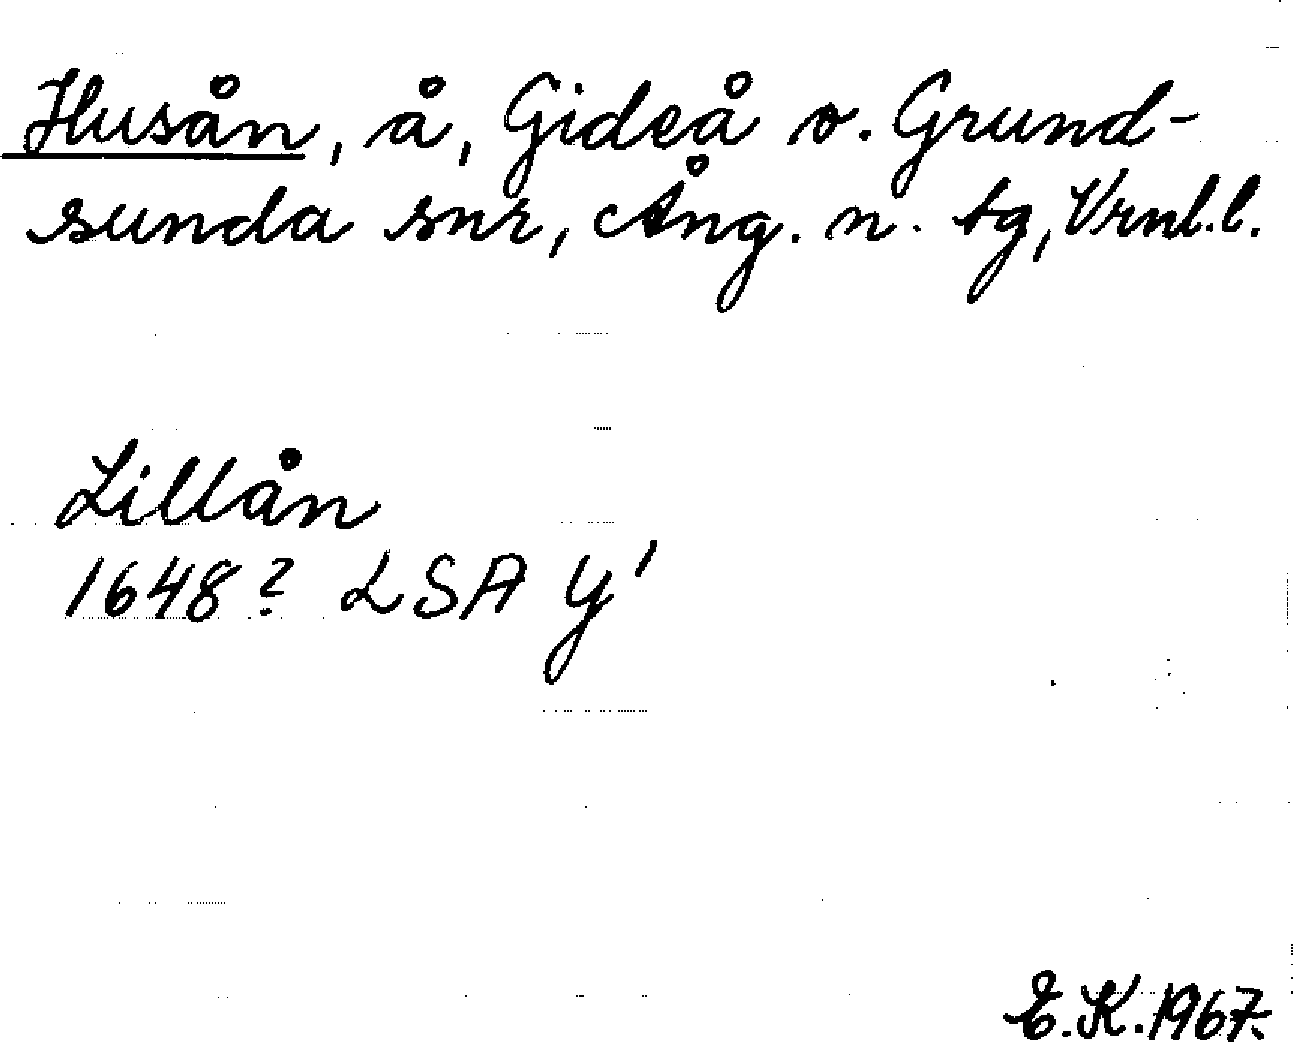 Husån, å, Gideå o. Grund-
sunda snr, Ång. n. tg, Vrnl.l.
Lillån
1648? LSA Y'
E.K.1967.